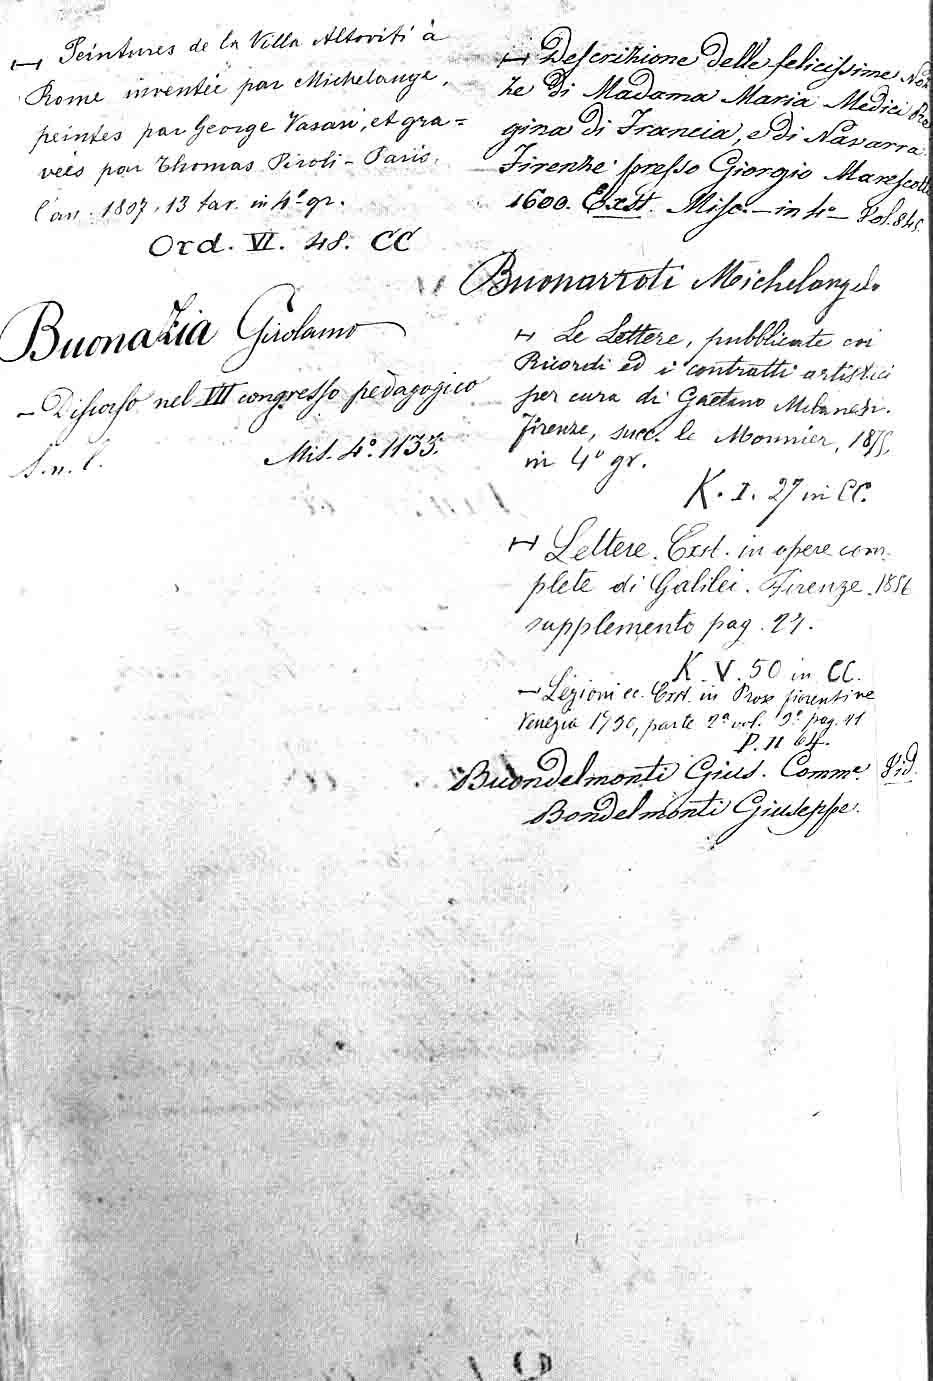 ⊢ Peintures de la Villa Altoviti à
Rome inventée par Michelange,
peintes par George Vasari, et gra=
vées par Thomas Piroli - Paris,
l'an. 1807, 13 tav. in 4º gr.
Ord. VI. 48. CC
Buonazia Girolamo
- Discorso nel VII congresso pedagogico
S. n. l.
Mis. 4º. 1133.
⊢ Descrizione delle felicissime Noz
ze di Madama Maria Medici Re
gina di Francia, e di Navarra
Firenze presso Giorgio Marescotti
1600. Exst. Misc. - in 4º - Vol. 845.
Buonarroti Michelangelo
⊢ Le Lettere, pubblicate coi
Ricordi ed i contratti artistici
per cura di Gaetano Milanesi.
Firenze, succ. le Monnier, 1875,
in 4º gr.
K. I. 27 in CC.
⊢ Lettere. Exst. in opere com
plete di Galilei. Firenze. 1856
supplemento pag. 27.
K. V. 50 in CC.
- Lezioni ec. Exst. in Prose fiorentine
Venezia 1730, parte 2ª vol. pag. 41
P. II 64.
Buondelmonti Gius. Comme. Vid.
Bondelmonti Giuseppe.